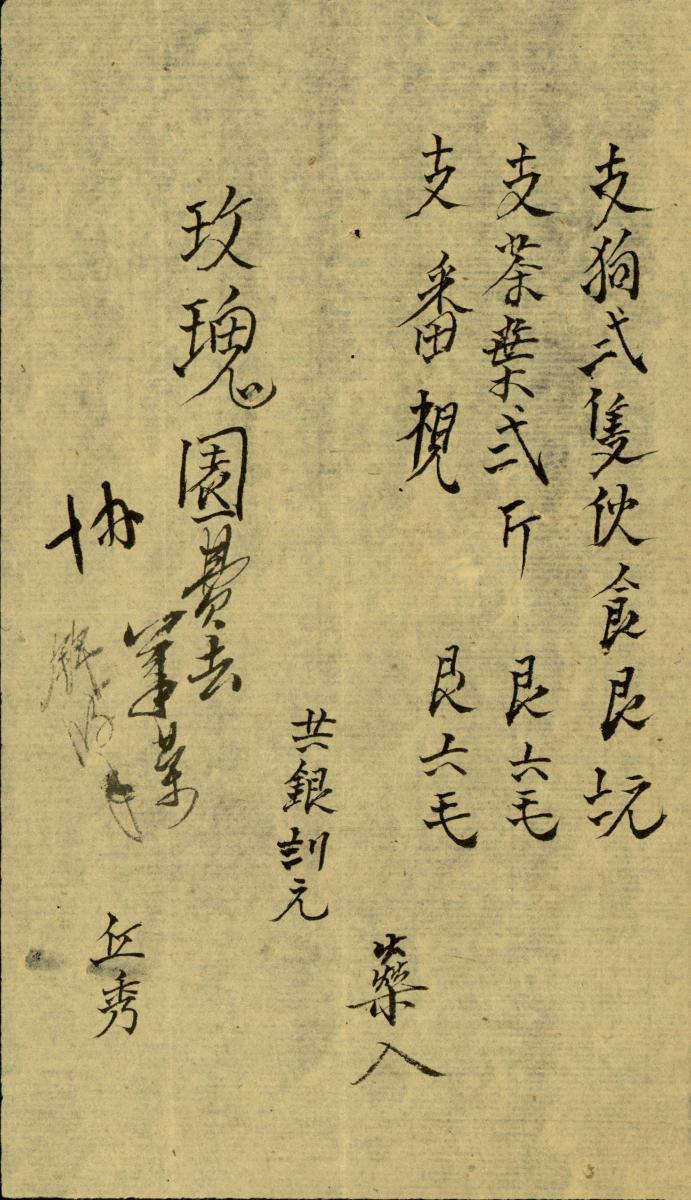 支狗弍隻伙食艮
支茶葉弍斤 艮六毛
支番梘 艮六毛
藥入
共銀 元
玫瑰園費去
協
丘秀